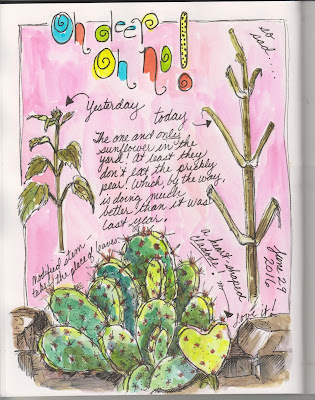 Oh deer
Oh no!
so
sad...
Yesterday
today
The one and only
sunflower in the
yard! At least they
don't eat the prickly
pear! Which, by the way,
is doing much
better than it was
last year.
modified stem
takes the place of leaves
a heart-shaped
love it!
June 29
2016